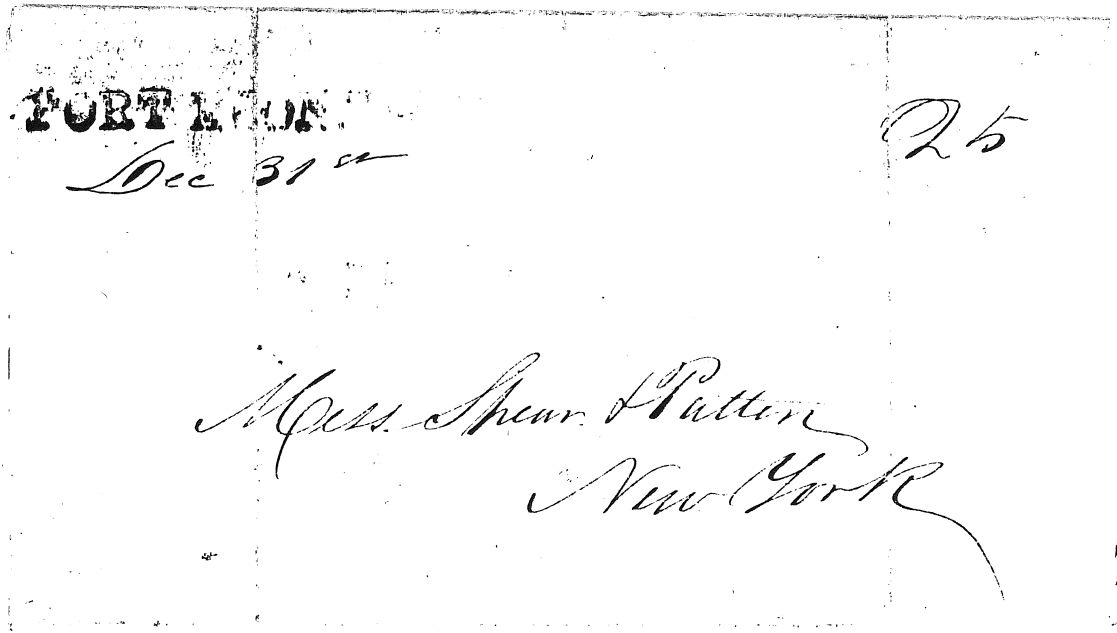 Dec 31st
25
Mess. Shear & Patten
New York